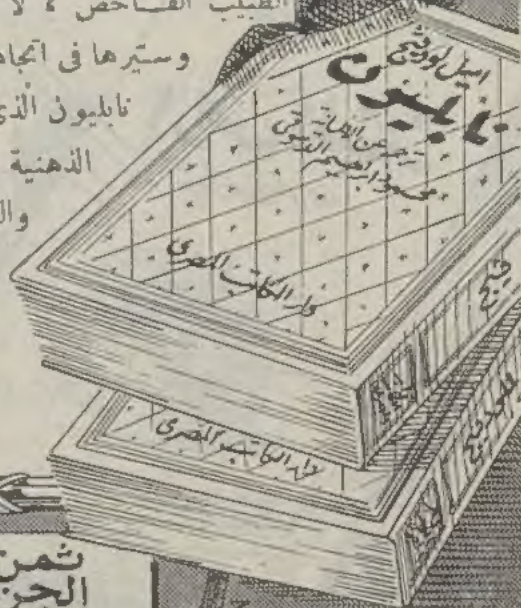 الطبيب الفاحص ، لا
وستيرها فى اتجاه
نابليون الذى
الذهنية
وال
اميل لودفيج
نابليون
ترجمه عن الألمانية
محمود ابراهيم الدسوقى
دار الكاتب المصرى
دار الكاتب المصرى
ثمن
الجز